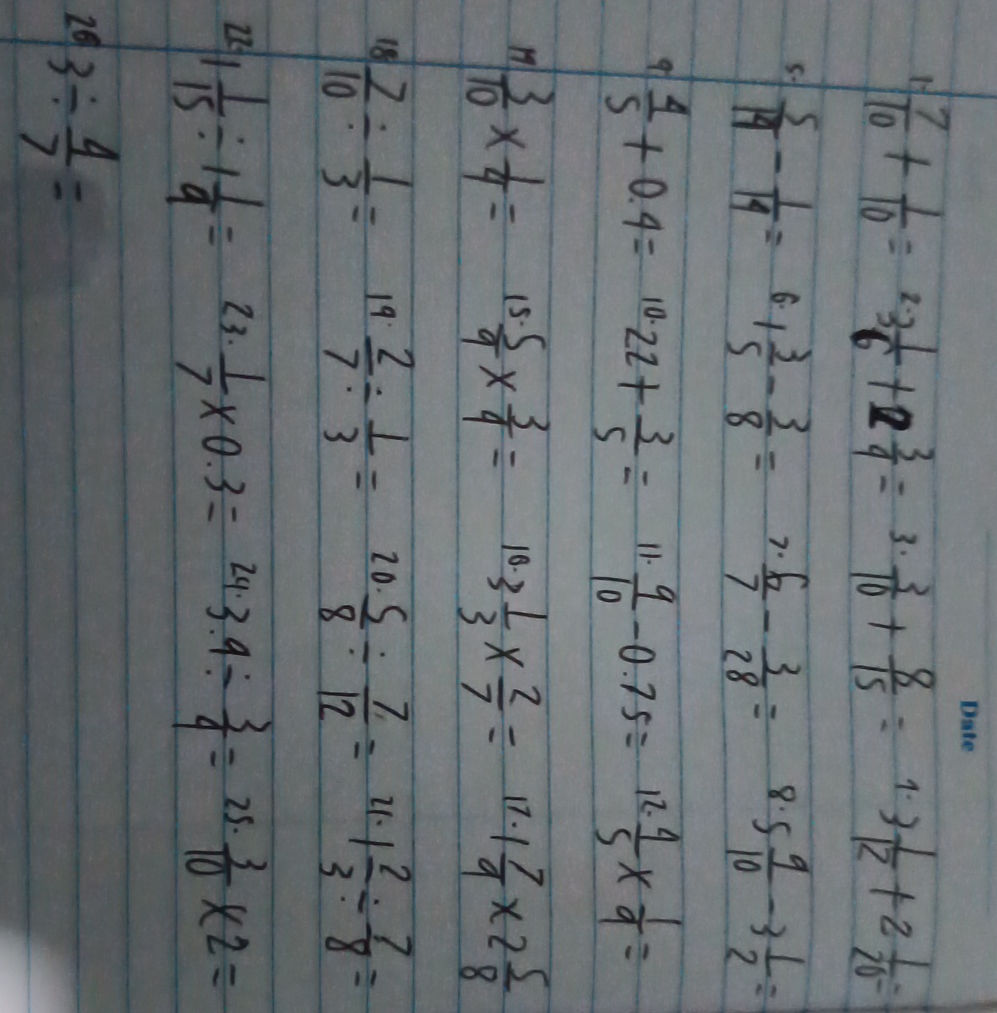 Date
1. 7/10 + 1/10 = 2. 3 1/6 + 2 3/4 = 3. 3/10 + 8/15 = 4. 3 1/12 + 2 1/20 =
5. 5/14 - 1/14 = 6. 1 3/5 - 3/8 = 7. 6/7 - 3/28 = 8. 5 9/10 - 3 1/2 =
9. 4/5 + 0.4 = 10. 22 + 3/5 = 11. 9/10 - 0.75 = 12. 4/5 x 1/9 =
14. 3/10 x 1/4 = 15. 5/9 x 3/4 = 16. 3 1/3 x 2/7 = 17. 1 7/9 x 2 5/8
18. 7/10 ÷ 1/3 = 19. 2/7 ÷ 1/3 = 20. 5/8 ÷ 7/12 = 21. 1 2/3 ÷ 7/8 =
22. 1 1/15 ÷ 1 1/9 = 23. 1/7 x 0.3 = 24. 3.9 ÷ 3/4 = 25. 3/10 x 2 =
26. 3 ÷ 4/7 =